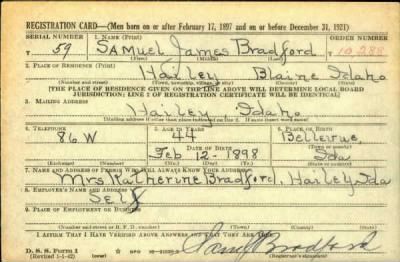 REGISTRATION CARD—(Men born on or after February 17, 1897 and on or before December 31, 1921)
SERIAL NUMBER 1. NAME (Print) ORDER NUMBER
59 SAMUEL James Bradford 10,288
(First) (Middle) (Last)
2. PLACE OF RESIDENCE (Print)
Hailey Blaine Idaho
(Number and street) (Town, township, village, or city) (County) (State)
[THE PLACE OF RESIDENCE GIVEN ON THE LINE ABOVE WILL DETERMINE LOCAL BOARD
JURISDICTION; LINE 2 OF REGISTRATION CERTIFICATE WILL BE IDENTICAL]
3. MAILING ADDRESS
Hailey Idaho
(Mailing address if other than place indicated on line 2. If same insert word same)
4. TELEPHONE 5. AGE IN YEARS 6. PLACE OF BIRTH
86 W 44 Bellevue
DATE OF BIRTH (Town or county)
Feb 12-1898 Ida
(Exchange) (Number) (Mo.) (Day) (Yr.) (State or country)
7. NAME AND ADDRESS OF PERSON WHO WILL ALWAYS KNOW YOUR ADDRESS
Mrs Katherine Bradford, Hailey Ida
8. EMPLOYER'S NAME AND ADDRESS
Self
9. PLACE OF EMPLOYMENT OR BUSINESS
(Number and street or R. F. D. number) (Town) (County) (State)
I AFFIRM THAT I HAVE VERIFIED ABOVE ANSWERS AND THAT THEY ARE TRUE.
D. S. S. Form 1
(Revised 1-1-42) GPO Bradford